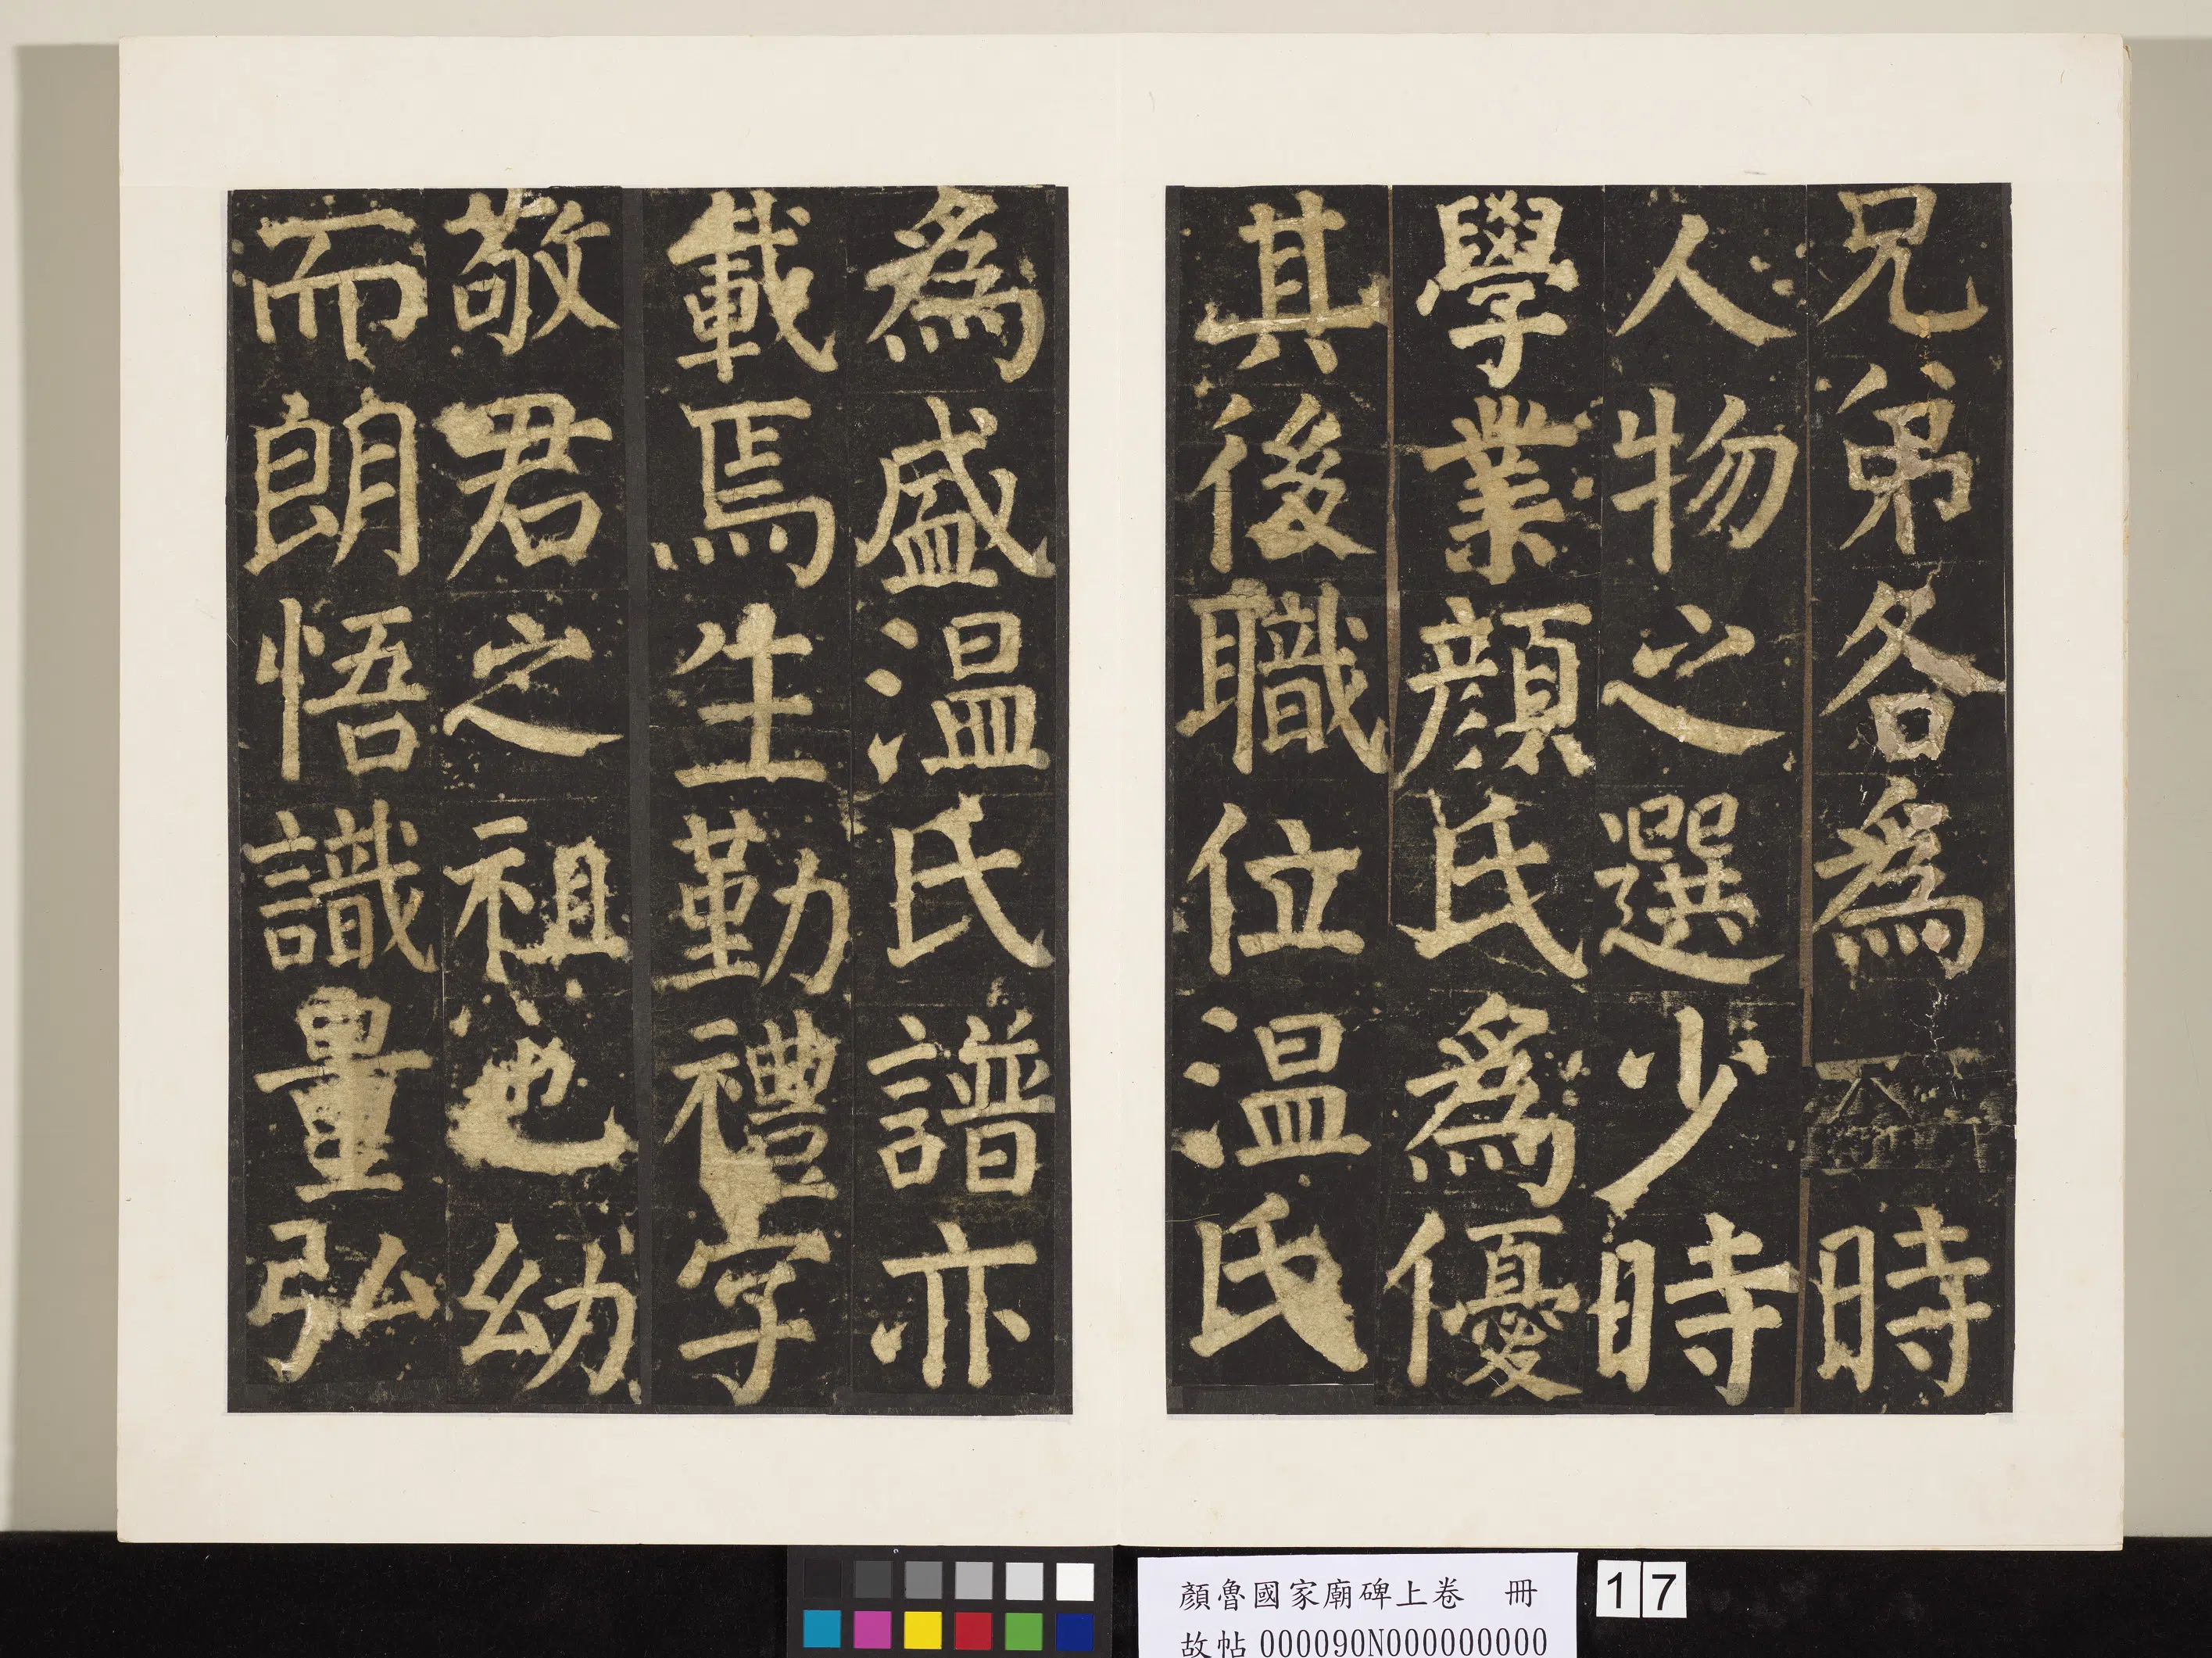 兄弟各爲時
人物之選少時
學業顏氏爲優
其後職位温氏
爲盛温氏譜亦
載焉生勤禮字
敬君之祖也幼
而朗悟識量弘
顏魯國家廟碑上卷 冊
故帖000090N000000000
17